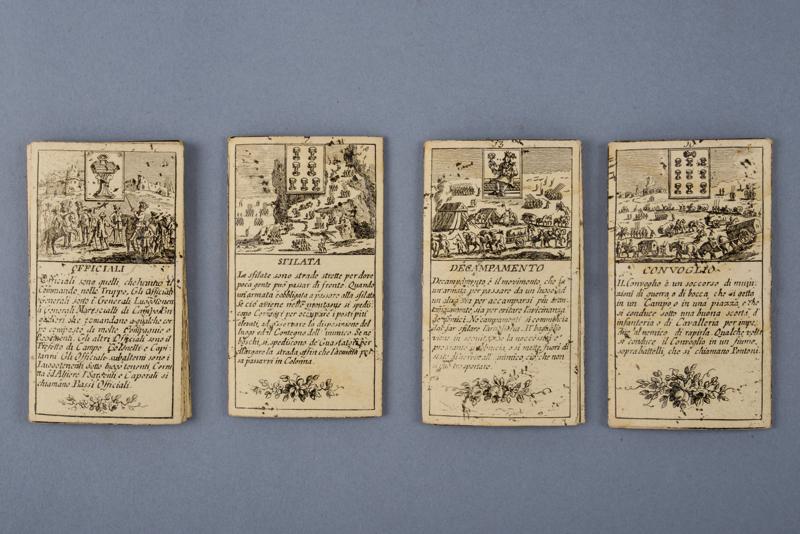 OFFICIALI
Officiali sono quelli, che hanno il
Commando nelle Truppe. Gli Officiali
Generali sono i Generali Luogotenen
ti Generali Marescialli di Campo e
gadieri che comandano a qualche cor
po composto di molte Compagnie o
Regimenti. Gli altri Officiali sono il
Prefetto di Campo Colonelli e Capi
tanni Gli Officiali subalterni sono i
Luogotenenti Sotto luogo tenenti Corni
tta ed Alfieri I Sargenti e Caporali si
chiamano Bassi Officiali
SFILATA
Le sfilate sono strade strette per dove
poca gente può passar di fronte. Quando
un'armata è obbligata a passare alla sfilata
se ciò avviene nelle montagne si spedi
scano Corpi per occupare i posti più
elevati, ad osservare la disposizione del
luogo ed il Contegno dell' inimico Se ne
Boschi, si spediscono de' Guastatori per
allargare la strada affin che l'armata pos
sa passarvi in Colonna.
13
DECAMPAMENTO
Decampamento è il movimento, che fa
un'armata per passare da un luogo ad
un altro sia per accamparsi più
sia per evitare la vicinanza
de' Nemici. Ne Campamenti si comincia
dal far sfilare l'Artiglieria. Il bagaglio
viene in seguito, e se la necessità è
pressante si abbrucia, o si mette fuori di
stato di servire all' inimico ciò che non
può trasportare.
CONVOGLIO
Il Convoglio è un soccorso di muni
zioni di guerra, o di bocca, che si getta
in un Campo o in una piazza, e che
si conduce sotto una buona scorta d'
infanteria o di Cavalleria per impe
dire al nemico di rapirla. Qualche volta
si conduce il Convoglio in un fiume,
sopra battelli, che si chiamano Pontoni.